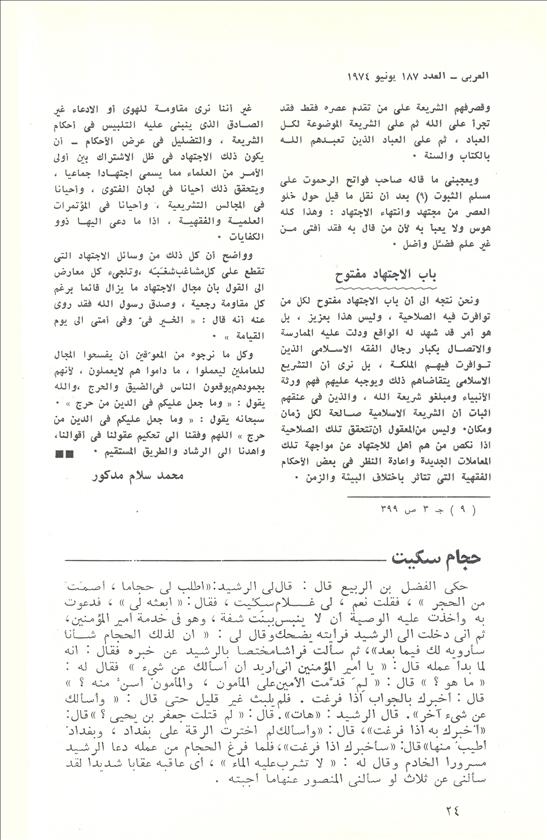 العربى – العدد ١٨٧ يونيو ١٩٧٤
وقصرفهم الشريعة على من تقدم عصره فقط فقد
تجرأ على الله ثم على الشريعة الموضوعة لكل
العباد ، ثم على العباد الذين تعبدهم الله
بالكتاب والسنة ٠
ويعجبنى ما قاله صاحب فواتح الرحموت على
مسلم الثبوت (٩) بعد أن نقل ما قيل حول خلو
العصر من مجتهد وانتهاء الاجتهاد : وهذا كله
هوس ولا يعبأ به لأن من قال به فقد أفتى مـن
غير علم فضئل وأضل ٠
باب الاجتهاد مفتوح
ونحن نتجه الى أن باب الاجتهاد مفتوح لكل من
توافرت فيه الصلاحية ، وليس هذا بعزيز ، بل
هو أمر قد شهد له الواقع ودلت عليه الممارسة
والاتصال بكبار رجال الفقه الاسـلامى الذين
توافرت فيهـم الملكـة ، بل نرى أن التشريع
الاسلامى يتقاضاهم ذلك ويوجبه عليهم فهم ورثة
الأنبياء ومبلغو شريعة الله ، والذين فى عنقهم
اثبات ان الشريعة الاسلامية صـالحة لكل زمان
ومكان٠ وليس من المعقول أن تتحقق تلك الصلاحية
اذا نكص من هم أهل للاجتهاد عن مواجهة تلك
المعاملات الجديدة واعادة النظر فى بعض الأحكام
الفقهية التى تتأثر باختلاف البيئة والزمن ٠
( ٩ ) جـ ٣ ص ٣٩٩
غير أننا نرى مقاومة للهوى أو الادعاء غير
الصـادق الذى ينبنى عليه التلبيس فى أحكام
الشريعة ، والتضليل فى عرض الأحكام – أن
يكون ذلك الاجتهاد فى ظل الاشتراك بين أولى
الأمـر من العلماء مما يسمى اجتهـادا جماعيا ،
ويتحقق ذلك أحيانا فى لجان الفتوى ، وأحيانا
فى المجالس التشريعية ، وأحيانا فى المؤتمرات
العلميـة والفقهيـة ، اذا ما دعى اليهـا ذوو
الكفايات ٠
وواضح أن كل ذلك من وسائل الاجتهاد التى
تقطع على كل مشاغب شغبته ، وتلجىء كل معارض
الى القول بأن مجال الاجتهاد ما يزال قائما برغم
كل مقاومة رجعية ، وصدق رسول الله فقد روى
عنه أنه قال : « الخـير فى وفى أمتى الى يوم
القيامة » ٠
وكل ما نرجوه من المعوقين أن يفسحوا المجال
للعاملين ليعملوا ، ما داموا هم لايعملون ، لأنهم
بجمودهم يوقعون الناس فى الضيق والحرج ، والله
يقول : « وما جعل عليكم فى الدين من حرج » ٠
سبحانه يقول : « وما جعل عليكم فى الدين من
حرج » اللهم وفقنا الى تحكيم عقولنا فى أقوالنا،
واهدنا الى الرشاد والطريق المستقيم ٠
محمد سلام مدكور
حجام سكيت
حكى الفضل بن الربيع قال : قال لى الرشيد: «اطلب لى حجاما ، أصمت
من الحجر » ، فقلت نعم ، لى غـلام سكيت ، فقال: « ابعثه لى » ، فدعوت
به وأخذت عليه الوصية أن لا ينبس ببنت شفة ، وهو فى خدمة أمير المؤمنين،
ثم انى دخلت الى الرشيد فرأيته يضحك وقال لى : « ان لذلك الحجام شـأنا
سأرويه لك فيما بعد»، ثم سألت فراشا مختصا بالرشيد عن خبره فقال : انه
لما بدأ عمله قال : « يا أمير المؤمنين انى أريد أن أسألك عن شىء » فقال له :
« ما هو ؟ » قال : « لم قدمت الأمين على المأمون ، والمأمون أسن منه ؟ »
قال : أخبرك بالجواب اذا فرغت . فلم يلبث غير قليل حتى قال : « وأسألك
عن شىء آخر». قال الرشيد : «هات». قال : « لم قتلت جعفر بن يحيى ؟ »قال:
«أخبرك به اذا فرغت»، قال : «وأسألك لم اخترت الرقة على بغداد ، وبغداد
أطيب منها»قال: «سأخبرك اذا فرغت»، فلما فرغ الحجام من عمله دعا الرشيد
مسرورا الخادم وقال له : « لا تشرب عليه الماء » ، أى عاقبه عقابا شديدا لقد
سألنى عن ثلاث لو سألنى المنصور عنها ما أجبته .
٢٤